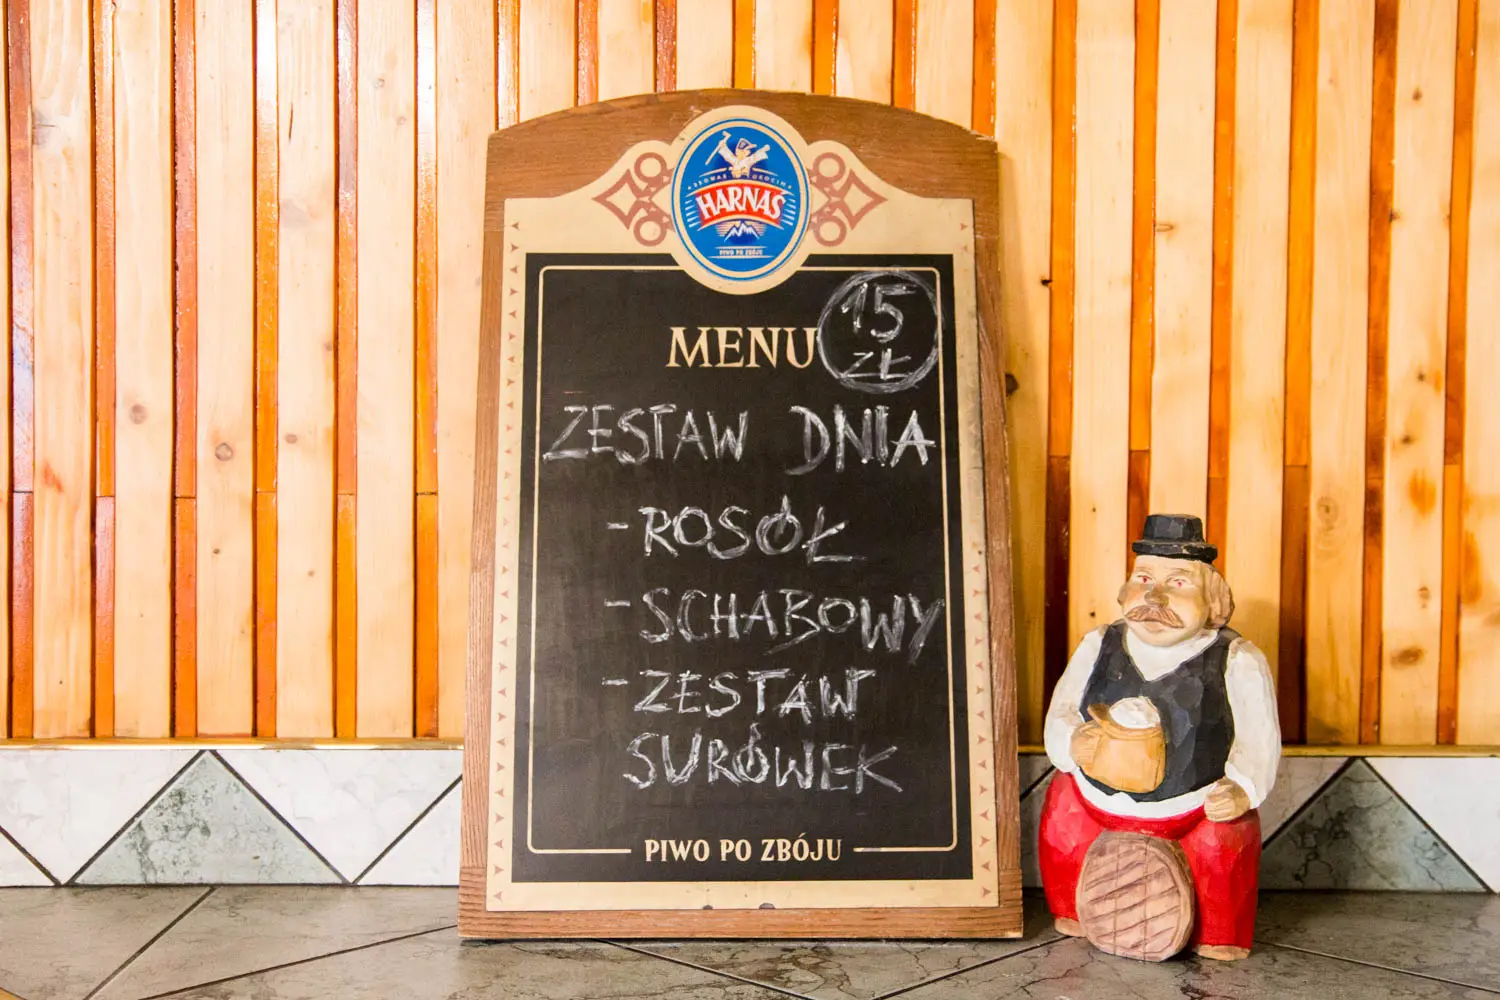 BROWAR OKOCIM
HARNAŚ
PIWO PO ZBÓJU
MENU
15
ZŁ
ZESTAW DNIA
-ROSÓŁ
-SCHABOWY
-ZESTAW
SURÓWEK
PIWO PO ZBÓJU